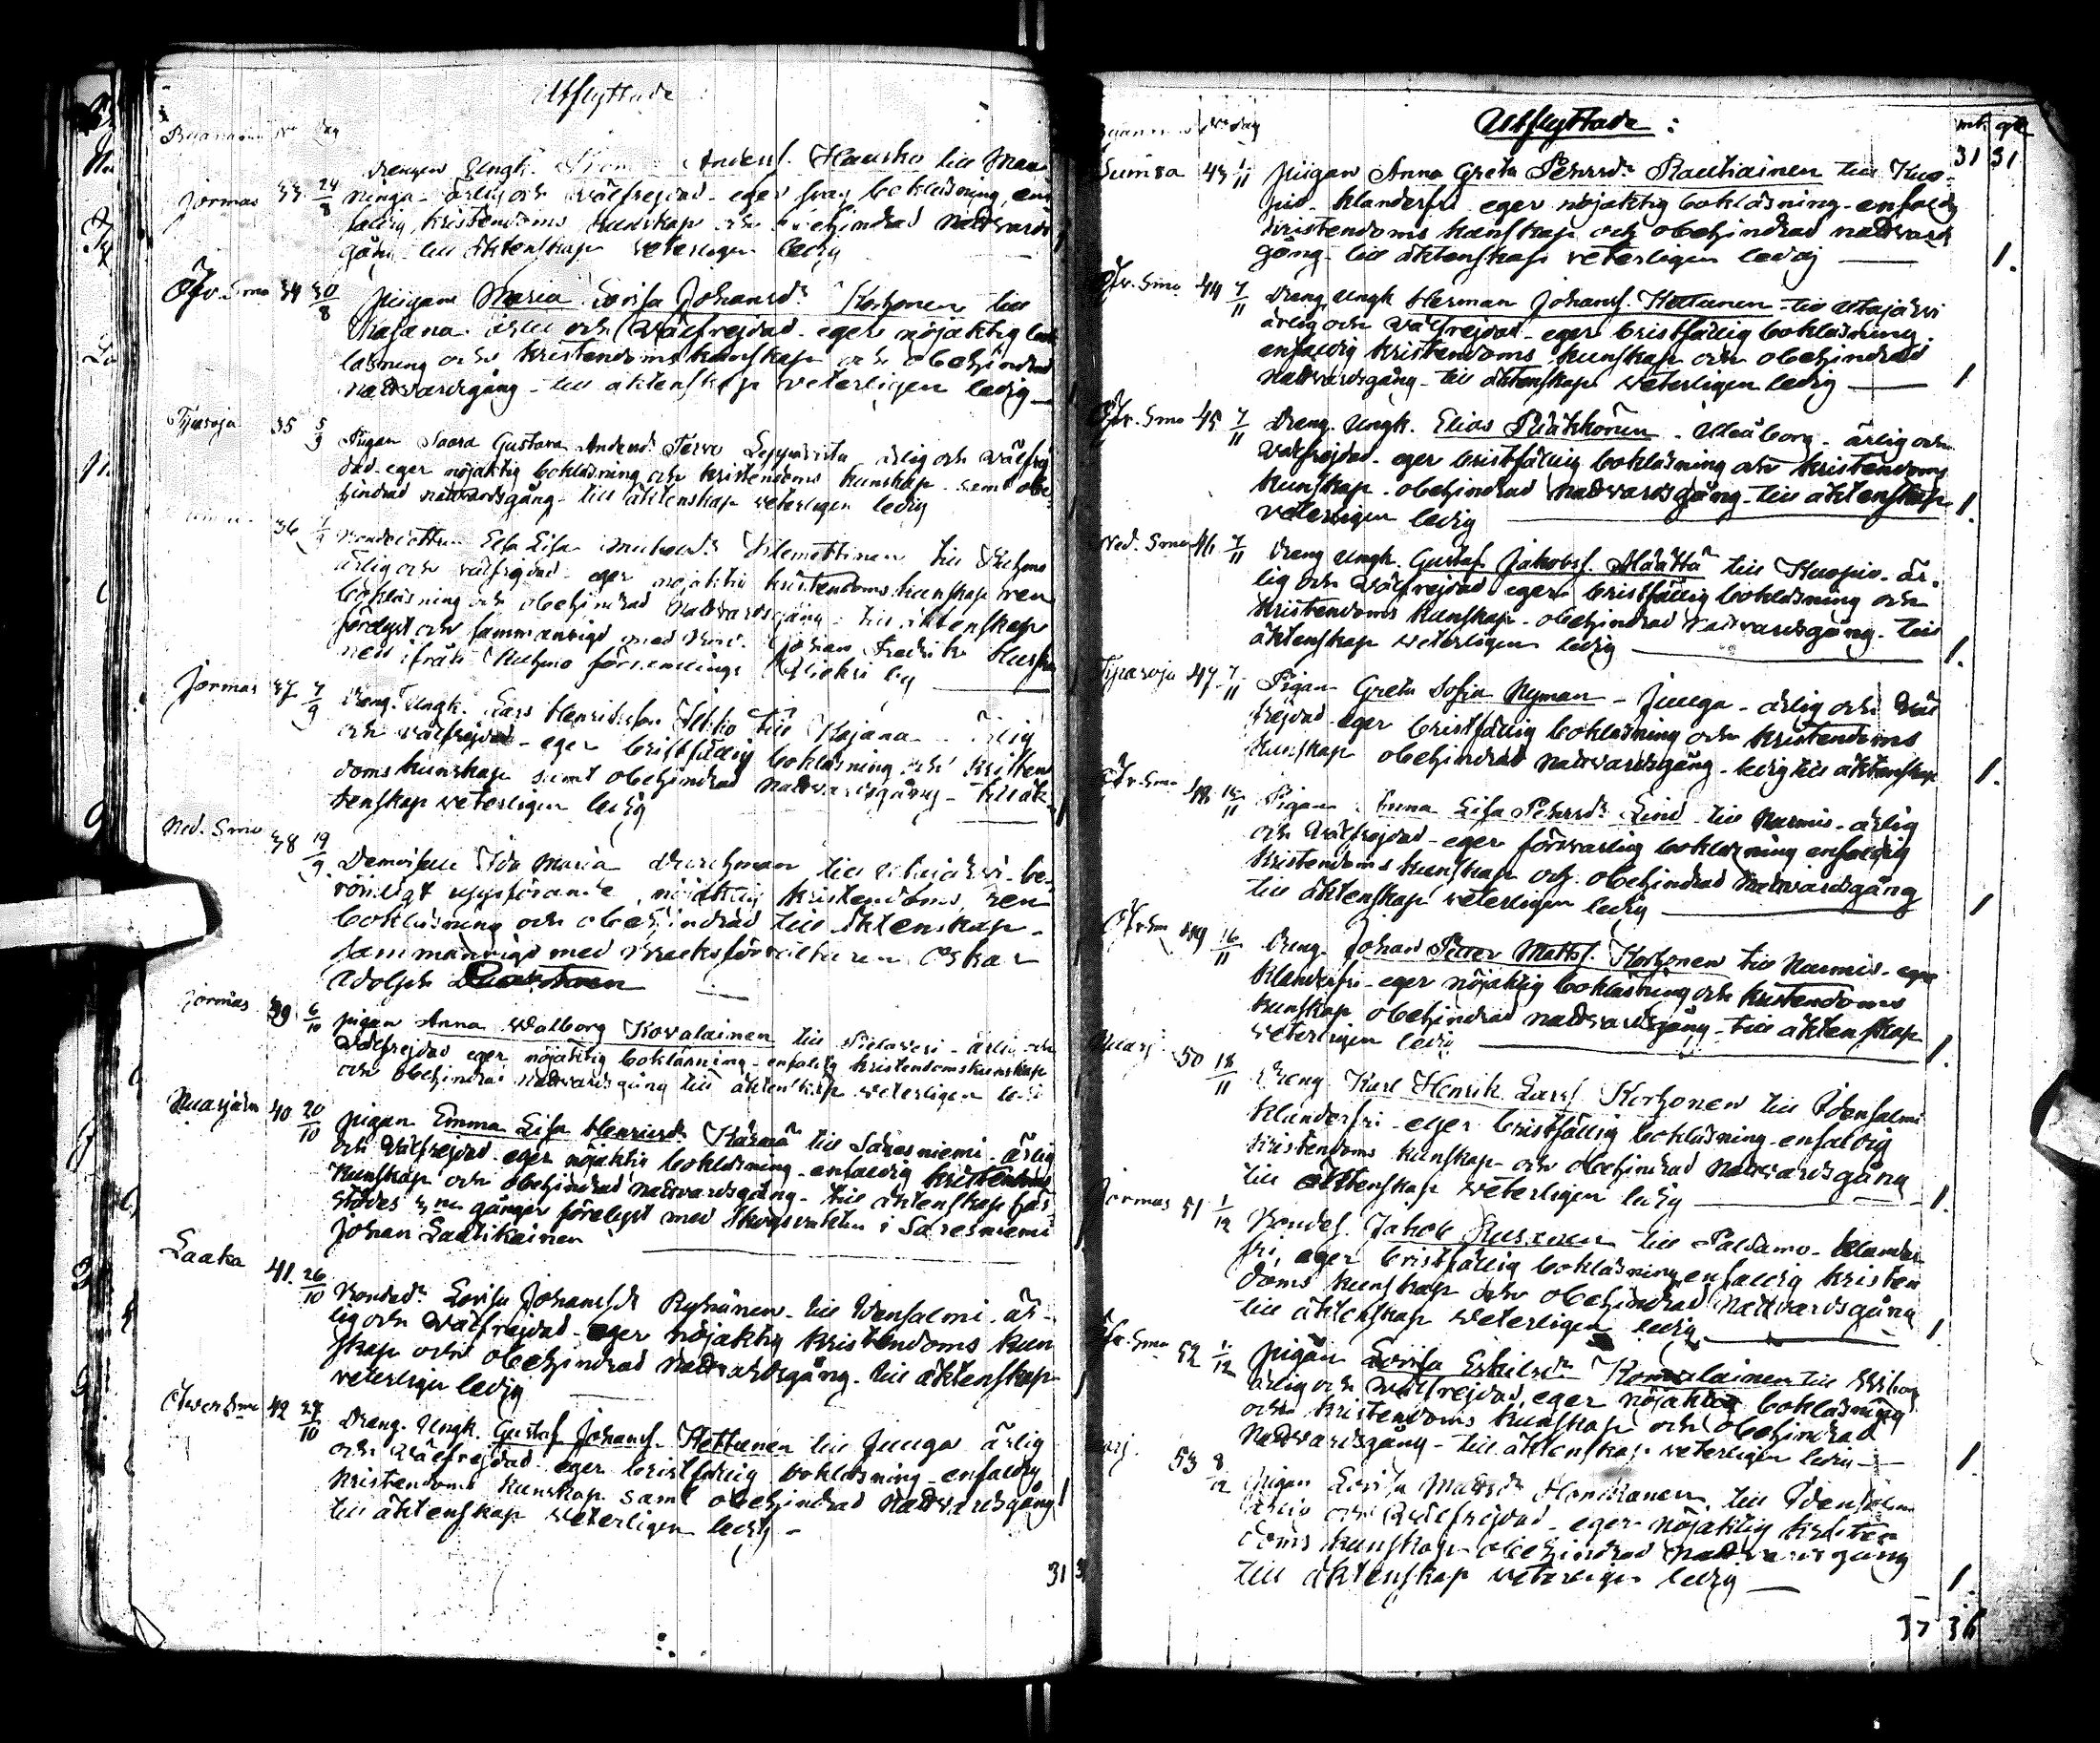 Utflyttade
Byanamn No dag
Drengen Ungk. Anderss. Hausko till Man
Jormas 33 24/8 ninga - ärlig och välfrejdad - eger svag bokläsning, en
faldig kristendoms kunskap och obehindrad nattvards
gång till äktenskap veterligen ledig
Öfv. Smo 34 30/8 pigan Maria Lovisa Johansdr Korhonen till
Kajana ärlig och välfrejdad - eger nöjaktig bok
läsning och kristendoms kunskap och obehindrad
nattvardsgång - till äktenskap veterligen ledig
Tipasoja 35 5/9 Pigan Saara Gustava Andersd. Tervo Leppävirta ärlig och välfrej
dad - eger nöjaktig bokläsning och kristendoms kunskap samt obe
hindrad nattvardsgång - till äktenskap veterligen ledig
36 Bondedottren Elsa Lisa Michelsdr Klemettinen till Kuhmo
ärlig och välfrejdad - eger nöjaktig kristendoms kunskap ren
bokläsning och obehindrad nattvardsgång - till äktenskap
förelyst och sammanvigd med Johan Fredrik
nen ifrån Kuhmo församlings by
Jormas 37 7/9 Dreng. Ungk. Lars Henriksson till Kajana ärlig
och välfrejdad - eger bristfällig bokläsning och kristen
doms kunskap samt obehindrad nattvardsgång - till äk
tenskap veterligen ledig
Ned. Smo 38 19/9 Demoisell Ida Maria till be
römligt uppförande, nöjaktig kristendoms, ren
bokläsning och obehindrad till äktenskap
sammanvigd med Bruksförvaltaren Oskar
Adolph
Jormas 39 6/10 pigan Anna Walborg Kovalainen till Pielavesi - ärlig och
välfrejdad eger nöjaktig bokläsning - enfaldig kristendomskunskap
och obehindrad nattvardsgång till äktenskap veterligen ledig
Nuasjärvi 40 20/10 pigan Emma Lisa Henriksdr Kärnä till Säresniemi - ärlig
och välfrejdad - eger nöjaktig bokläsning - enfaldig kristendoms
kunskap och obehindrad nattvardsgång - till äktenskap får
gånger förelyst med Skogsvakten i Säresniemi
Johan Laatikainen
Laaka 41. 26/10 Bondedr Lovisa Johansdr Ryhänen - till Idensalmi - är
lig och välfrejdad - eger nöjaktig kristendoms kun
skap och obehindrad nattvardsgång - till äktenskap
veterligen ledig
Öfver Smo 42 27/10 Dreng. Ungk. Gustaf Johanss. Hettunen till Juuga ärlig
och välfrejdad eger bristfällig bokläsning - enfaldig
kristendoms kunskap samt obehindrad nattvardsgång 1
till äktenskap veterligen ledig -
31 3
Utflyttade:
Byanamn No dag mk qk
31 31
Sumsa 43 1/11 pigan Anna Greta Pehrsdr Rautiainen till Kuo-
pio - klanderfri eger nöjaktig bokläsning - enfaldig
kristendoms kunskap och obehindrad nattvard
gång - till äktenskap veterligen ledig 1.
Öfv. Smo 44 7/11 Dreng Ungk Herman Johanss. Hettunen till Utajärvi
ärlig och välfrejdad - eger bristfällig bokläsning
enfaldig kristendoms kunskap och obehindrad
nattvardsgång - till äktenskap veterligen ledig 1
Öfv. Smo 45 7/11 Dreng. Ungk. Elias Pääkkönen - Uleåborg - ärlig och
välfrejdad - eger bristfällig bokläsning och kristendoms
kunskap - obehindrad nattvardsgång - till äktenskap
veterligen ledig 1.
Ned. Smo 46 7/11 Dreng Ungk. Gustaf Jakobss. Määttä till Kuopio - är
lig och välfrejdad eger bristfällig bokläsning och
kristendoms kunskap - obehindrad nattvardsgång - till
äktenskap veterligen ledig 1.
Tipasoja 47 7/11 Pigan Greta Sofia Nyman - Juuga - ärlig och väl
frejdad - eger bristfällig bokläsning och kristendoms
kunskap obehindrad nattvardsgång - ledig till äktenskap 1.
Öfv. Smo 48 Pigan Anna Lisa Pehrsdr Lind - till Nurmis - ärlig
och välfrejdad - eger försvarlig bokläsning enfaldig
kristendoms kunskap och obehindrad nattvardsgång
till äktenskap veterligen ledig 1
Öfv. Sm 49 16/11 Dreng. Johan Petter Mattss. Korhonen till Nurmis - eger
klanderfri - eger nöjaktig bokläsning och kristendoms
kunskap obehindrad nattvardsgång - till äktenskap
veterligen ledig 1.
Nuasj. 50 18/11 Dreng Karl Henrik Larss. Korhonen till Idensalmi
klanderfri - eger bristfällig bokläsning - enfaldig
kristendoms kunskap - och obehindrad nattvardsgång
till äktenskap veterligen ledig 1.
Jormas 51 1/12 Bondes. Jakob till Paldamo - klander
fri, eger bristfällig bokläsning enfaldig kristen
doms kunskap och obehindrad nattvardsgång
till äktenskap veterligen ledig 1
Öfv. Smo 52 1/12 pigan Lovisa Eskilsdr Komulainen till Wiborg
ärlig och välfrejdad, eger nöjaktig bokläsning
och kristendoms kunskap och obehindrad
nattvardsgång - till äktenskap veterligen ledig 1
53 8/12 Pigan Lovisa Mattsdr Heikkanen till Idensalmi
ärlig och välfrejdad - eger nöjaktig kristen
doms kunskap - obehindrad nattvardsgång
till äktenskap veterligen ledig 1.
37 36